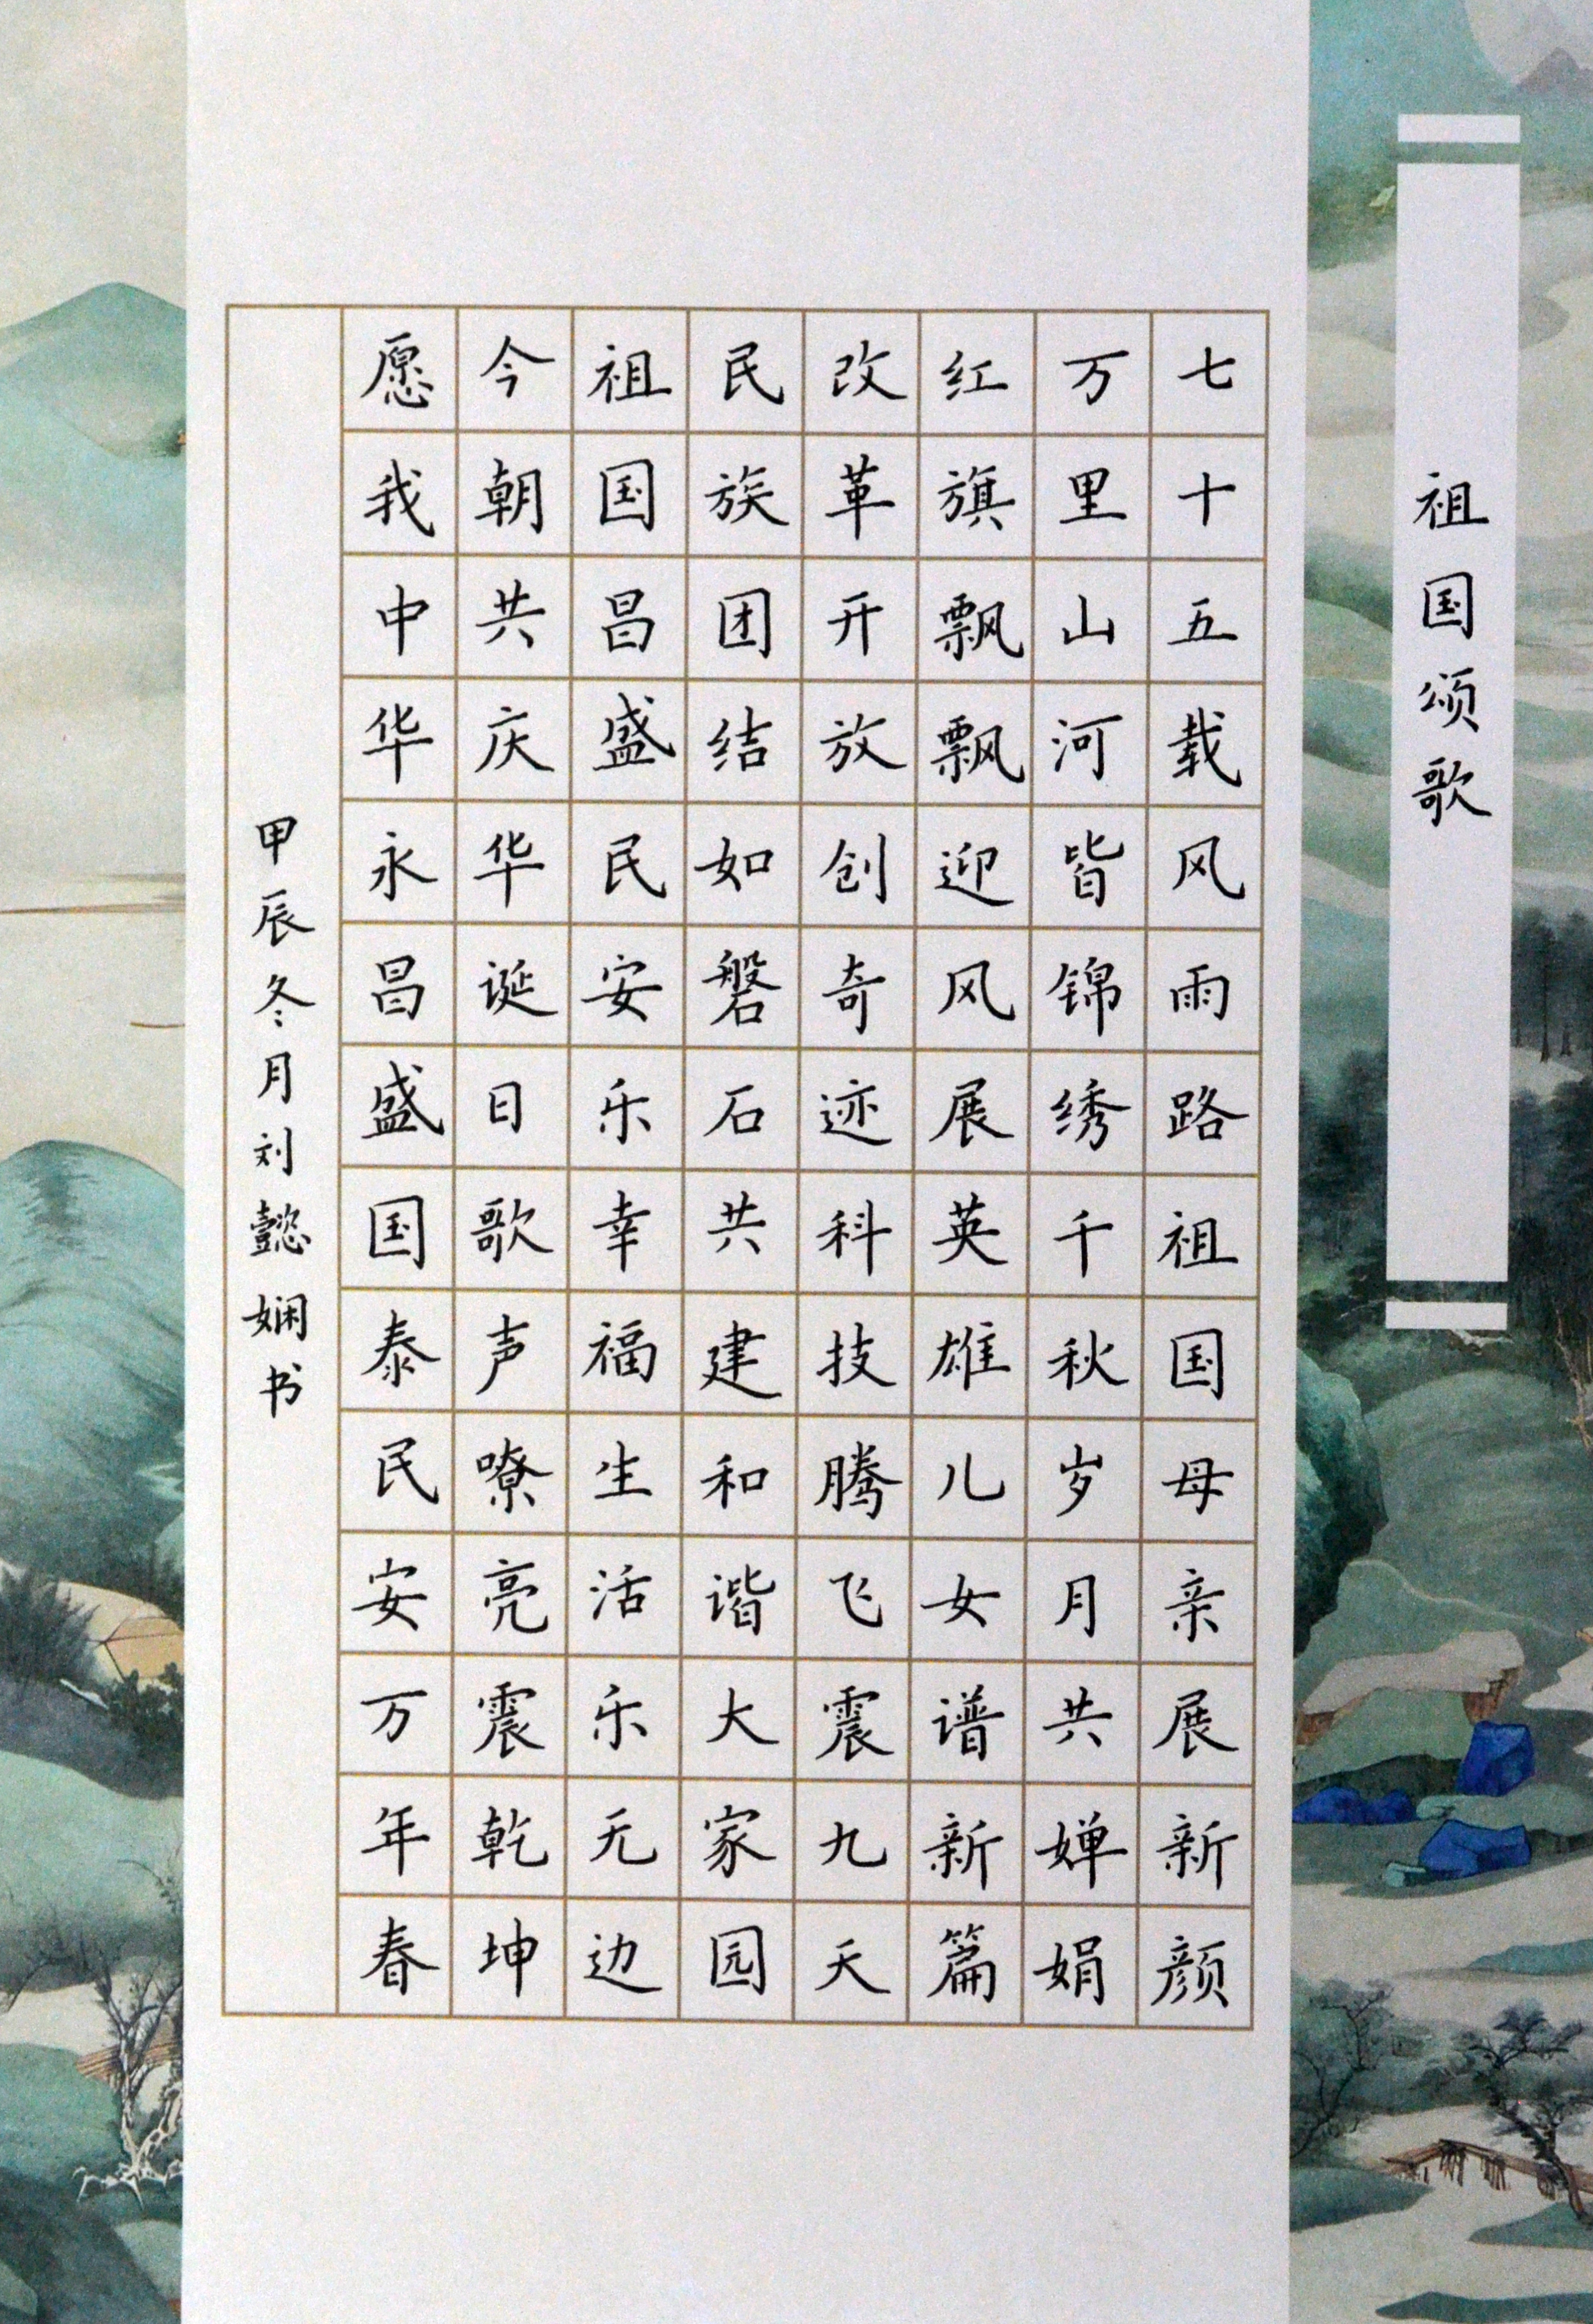 祖国颂歌
七十五载风雨路祖国母亲展新颜
万里山河皆锦绣千秋岁月共婵娟
红旗飘飘迎风展英雄儿女谱新篇
改革开放创奇迹科技腾飞震九天
民族团结如磐石共建和谐大家园
祖国昌盛民安乐幸福生活乐无边
今朝共庆华诞日歌声嘹亮震乾坤
愿我中华永昌盛国泰民安万年春
甲辰冬月刘懿娴书